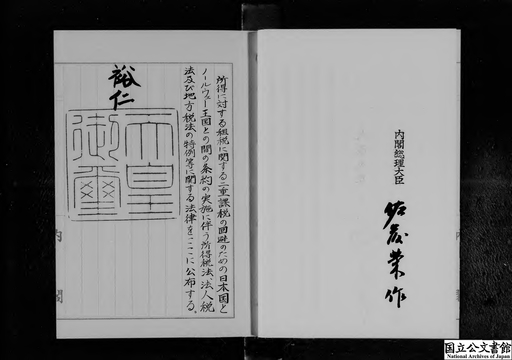 所得に対する租税に関する二重課税の回避のための日本国と
ノールウェー王国との間の条約の実施に伴う所得税法、法人税
法及び地方税法の特例等に関する法律をここに公布する。
裕仁
天皇
御璽
内閣総理大臣
佐藤榮作
内閣
国立公文書館
National Archives of Japan